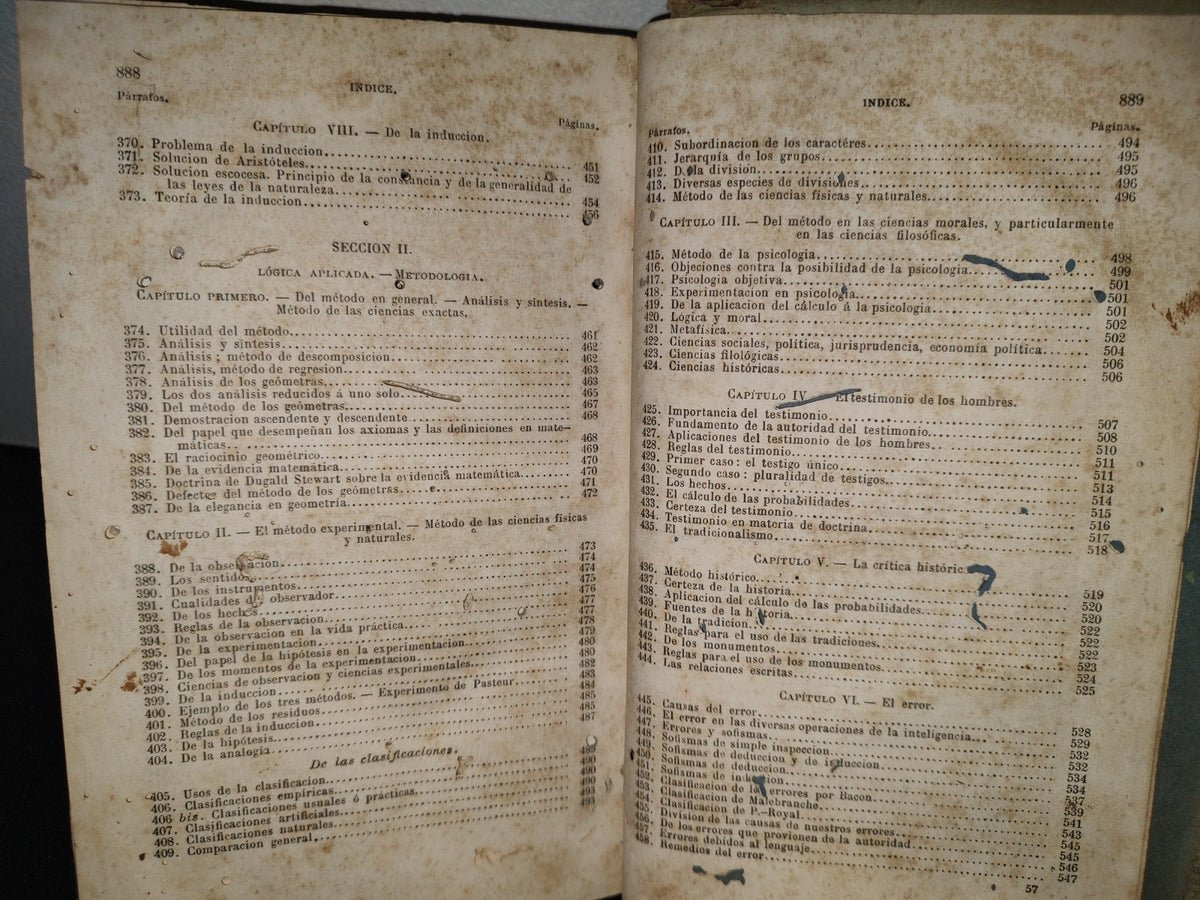 888
INDICE.
Párrafos.
Páginas.
CAPÍTULO VIII. — De la induccion.
370. Problema de la induccion
371. Solucion de Aristóteles 451
372. Solucion escocesa. Principio de la constancia y de la generalidad de 452
las leyes de la naturaleza 454
373. Teoría de la induccion 456
SECCION II.
LÓGICA APLICADA. — METODOLOGIA.
CAPÍTULO PRIMERO. — Del método en general. — Análisis y síntesis. —
Método de las ciencias exactas.
374. Utilidad del método 461
375. Análisis y síntesis 462
376. Análisis; método de descomposicion 462
377. Análisis, método de regresion 463
378. Análisis de los geómetras 463
379. Los dos análisis reducidos á uno solo 465
380. Del método de los geómetras 467
381. Demostracion ascendente y descendente 468
382. Del papel que desempeñan los axiomas y las definiciones en mate-
máticas 468
383. El raciocinio geométrico 469
384. De la evidencia matemática 470
385. Doctrina de Dugald Stewart sobre la evidencia matemática 470
386. Defectos del método de los geómetras 471
387. De la elegancia en geometría 472
CAPÍTULO II. — El método experimental. — Método de las ciencias físicas
y naturales.
388. De la observacion 473
389. Los sentidos 474
390. De los instrumentos 474
391. Cualidades del observador 475
392. De los hechos 476
393. Reglas de la observacion 477
394. De la observacion en la vida práctica 477
395. De la experimentacion 478
396. Del papel de la hipótesis en la experimentacion 479
397. De los momentos de la experimentacion 480
398. Ciencias de observacion y ciencias experimentales 480
399. De la induccion 482
400. Ejemplo de los tres métodos. — Experimento de Pasteur 483
401. Método de los residuos 484
402. Reglas de la induccion 485
403. De la hipótesis 485
404. De la analogía 487
De las clasificaciones.
405. Usos de la clasificacion 489
406. Clasificaciones empíricas 490
406 bis. Clasificaciones usuales ó prácticas 490
407. Clasificaciones artificiales 490
408. Clasificaciones naturales 493
409. Comparacion general 493
INDICE.
889
Párrafos.
Páginas.
410. Subordinacion de los caractéres 494
411. Jerarquía de los grupos 495
412. De la division 495
413. Diversas especies de divisiones 496
414. Método de las ciencias físicas y naturales 496
CAPÍTULO III. — Del método en las ciencias morales, y particularmente
en las ciencias filosóficas.
415. Método de la psicologia 498
416. Objeciones contra la posibilidad de la psicologia 499
417. Psicologia objetiva 501
418. Experimentacion en psicologia 501
419. De la aplicacion del cálculo á la psicologia 501
420. Lógica y moral 502
421. Metafísica 502
422. Ciencias sociales, política, jurisprudencia, economía política 504
423. Ciencias filológicas 506
424. Ciencias históricas 506
CAPÍTULO IV. El testimonio de los hombres.
425. Importancia del testimonio 507
426. Fundamento de la autoridad del testimonio 508
427. Aplicaciones del testimonio de los hombres 510
428. Reglas del testimonio 511
429. Primer caso: el testigo único 511
430. Segundo caso: pluralidad de testigos 513
431. Los hechos 514
432. El cálculo de las probabilidades 515
433. Certeza del testimonio 516
434. Testimonio en materia de doctrina 517
435. El tradicionalismo 518
CAPÍTULO V. — La crítica históric
436. Método histórico 519
437. Certeza de la historia 520
438. Aplicacion del cálculo de las probabilidades 520
439. Fuentes de la historia 522
440. De la tradicion 522
441. Reglas para el uso de las tradiciones 522
442. De los monumentos 523
443. Reglas para el uso de los monumentos 524
444. Las relaciones escritas 525
CAPÍTULO VI. — El error.
445. Causas del error 528
446. El error en las diversas operaciones de la inteligencia 529
447. Errores y sofismas 532
448. Sofismas de simple inspeccion 532
449. Sofismas de deduccion y de induccion 534
450. Sofismas de deduccion 534
451. Sofismas de induccion 537
452. Clasificacion de los errores por Bacon 539
453. Clasificacion de Malebranche 541
454. Clasificacion de P.-Royal 543
455. Division de las causas de nuestros errores 545
456. De los errores que provienen de la autoridad 545
457. Errores debidos al lenguaje 546
458. Remedios del error 547
57